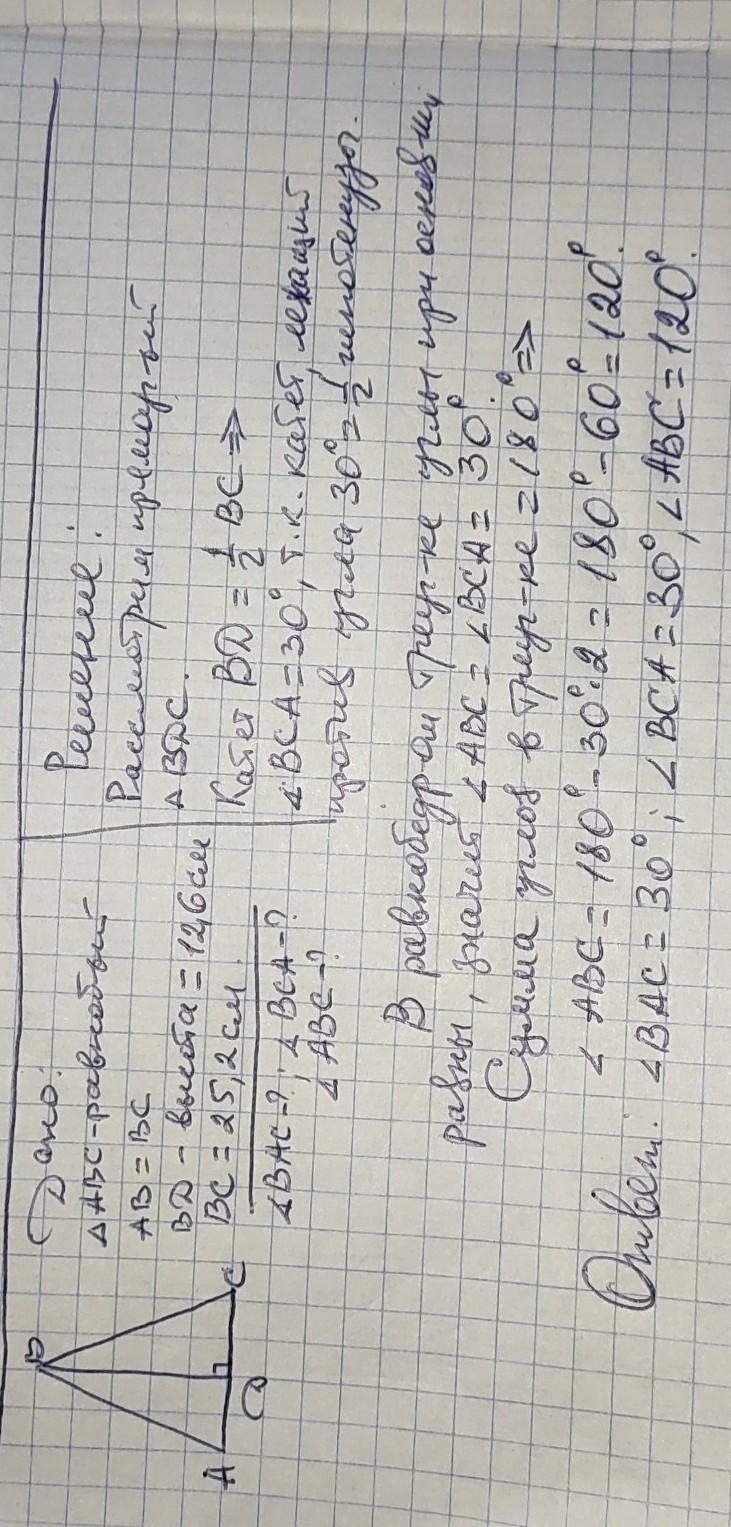 B
A
D
C
Дано:
△ABC-равноб-ый
AB = BC
BD - высота = 12,6 см
BC = 25,2 см.
∠BAC-?; ∠BCA-?
∠ABC-?
Решение:
Рассмотрим прямоуг-ый
△BDC.
Катет BD = 1/2 BC ⇒
∠BCA = 30°, т.к. катет, лежащий
против угла 30° = 1/2 гипотенузы.
В равнобедр-ом треуг-ке углы при основ-ии
равны, значит ∠ABC = ∠BCA = 30°.
Сумма углов в треуг-ке = 180° ⇒
∠ABC = 180° - 30°·2 = 180° - 60° = 120°.
Ответ: ∠BAC = 30°; ∠BCA = 30°, ∠ABC = 120°.